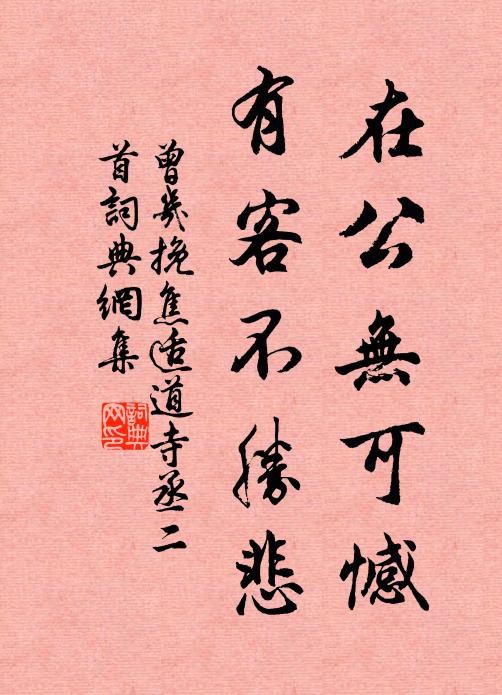 在公無可憾
有客不勝悲
曾幾挽焦適道寺丞二
首詞典網集
詞典
网印